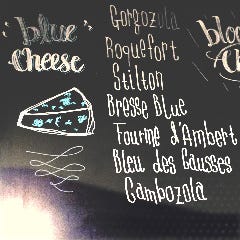 blue
cheese
Gorgozola
Roquefort
Stilton
Bresse Blue
Fourme d'Ambert
Bleu des Causses
Cambozola